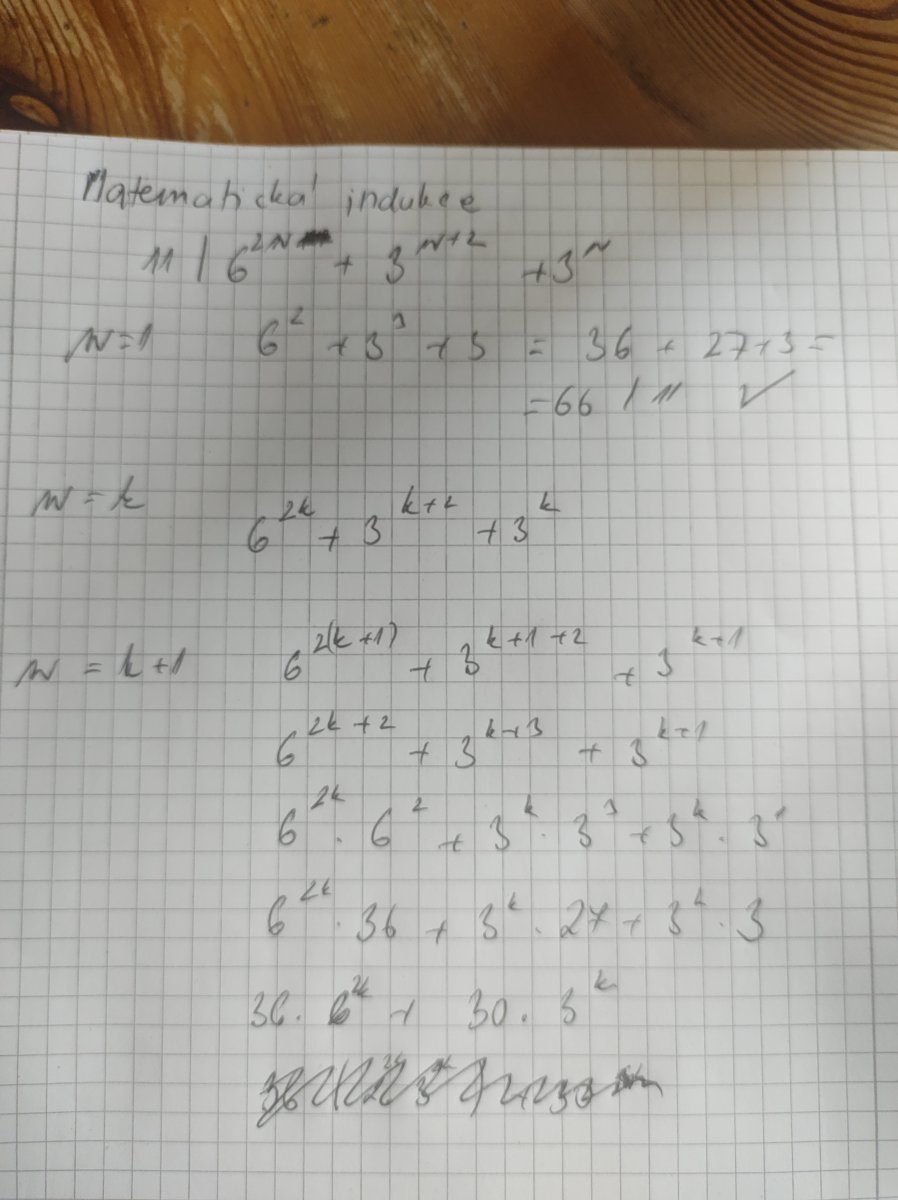 Matematická indukce
11 | 6^{2n} + 3^{n+2} + 3^n
n=1 6^2 + 3^3 + 3 = 36 + 27+3 =
= 66 / 11 ✓
n = k 6^{2k} + 3^{k+2} + 3^k
n = k+1 6^{2(k+1)} + 3^{k+1+2} + 3^{k+1}
6^{2k+2} + 3^{k+3} + 3^{k+1}
6^{2k} · 6^2 + 3^k · 3^3 + 3^k · 3^1
6^{2k} · 36 + 3^k · 27 + 3^k · 3
36 · 6^{2k} + 30 · 3^k